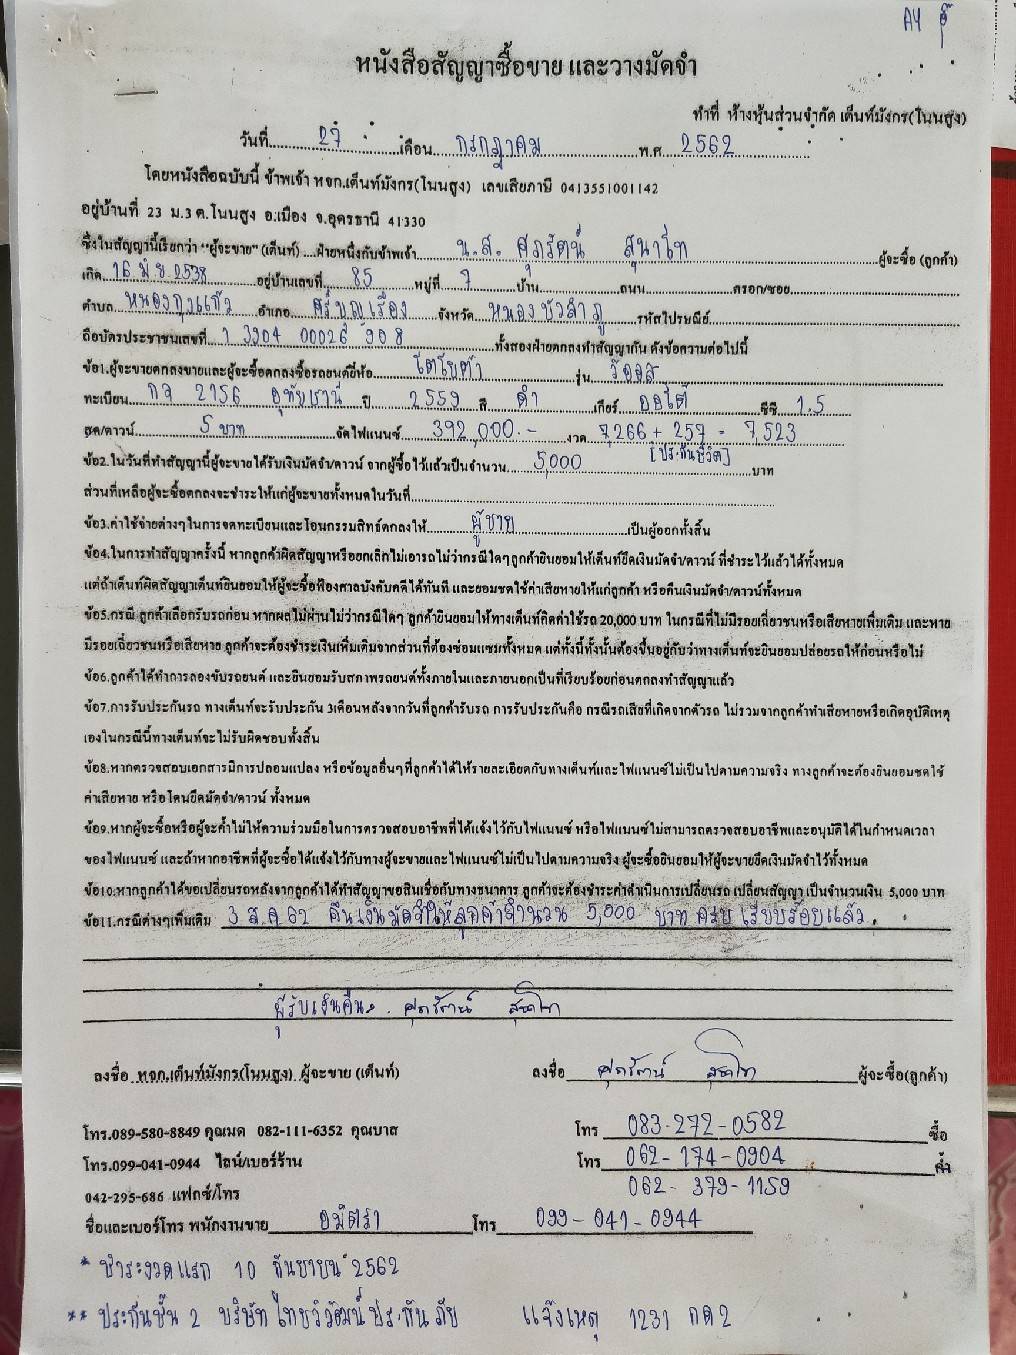 A4
หนังสือสัญญาซื้อขาย และวางมัดจำ
ทำที่ ห้างหุ้นส่วนจำกัด เต็นท์มังกร(โนนสูง)
วันที่ 27 เดือน กรกฎาคม พ.ศ 2562
โดยหนังสือฉบับนี้ ข้าพเจ้า หจก.เต็นท์มังกร(โนนสูง) เลขเสียภาษี 0413551001142
อยู่บ้านที่ 23 ม.3 ต.โนนสูง อ.เมือง จ.อุดรธานี 41330
ซึ่งในสัญญานี้เรียกว่า "ผู้จะขาย" (เต็นท์) ...ฝ่ายหนึ่งกับข้าพเจ้า น.ส. ศุภรัตน์ สุนาโท ผู้จะซื้อ (ลูกค้า)
เกิด 16 มิ.ย. 2538 อยู่บ้านเลขที่ 85 หมู่ที่ 7 บ้าน ถนน ตรอก/ซอย
ตำบล หนองกุงแก้ว อำเภอ ศรีบุญเรือง จังหวัด หนองบัวลำภู รหัสไปรษณีย์
ถือบัตรประชาชนเลขที่ 1 3904 00026 908 ทั้งสองฝ่ายตกลงทำสัญญากัน ดังข้อความต่อไปนี้
ข้อ1.ผู้จะขายตกลงขายและผู้จะซื้อตกลงซื้อรถยนต์ยี่ห้อ โตโยต้า รุ่น วีออส
ทะเบียน กจ 2156 อุทัยธานี ปี 2559 สี ดำ เกียร์ ออโต้ ซีซี 1.5
สด/ดาวน์ 5 บาท จัดไฟแนนซ์ 392,000.- งวด 7,266 + 257 = 7,523
[ประกันชีวิต]
ข้อ2.ในวันที่ทำสัญญานี้ผู้จะขายได้รับเงินมัดจำ/ดาวน์ จากผู้ซื้อไว้แล้วเป็นจำนวน 5,000 บาท
ส่วนที่เหลือผู้จะซื้อตกลงจะชำระให้แก่ผู้จะขายทั้งหมดในวันที่
ข้อ3.ค่าใช้จ่ายต่างๆในการจดทะเบียนและโอนกรรมสิทธ์ตกลงให้ ผู้ขาย เป็นผู้ออกทั้งสิ้น
ข้อ4.ในการทำสัญญาครั้งนี้ หากลูกค้าผิดสัญญาหรือยกเลิกไม่เอารถไม่ว่ากรณีใดๆลูกค้ายินยอมให้เต็นท์ยึดเงินมัดจำ/ดาวน์ ที่ชำระไว้แล้วได้ทั้งหมด
แต่ถ้าเต็นท์ผิดสัญญาเต็นท์ยินยอมให้ผู้จะซื้อฟ้องศาลบังคับคดีได้ทันที และยอมชดใช้ค่าเสียหายให้แก่ลูกค้า หรือคืนเงินมัดจำ/ดาวน์ทั้งหมด
ข้อ5.กรณี ลูกค้าเลือกรับรถก่อน หากผลไม่ผ่านไม่ว่ากรณีใดๆ ลูกค้ายินยอมให้ทางเต็นท์คิดค่าใช้รถ 20,000 บาท ในกรณีที่ไม่มีรอยเฉี่ยวชนหรือเสียหายเพิ่มเติม และหาย
มีรอยเฉี่ยวชนหรือเสียหาย ลูกค้าจะต้องชำระเงินเพิ่มเติมจากส่วนที่ต้องซ่อมแซมทั้งหมด แต่ทั้งนี้ทั้งนั้นต้องขึ้นอยู่กับว่าทางเต็นท์จะยินยอมปล่อยรถให้ก่อนหรือไม่
ข้อ6.ลูกค้าได้ทำการลองขับรถยนต์ และยินยอมรับสภาพรถยนต์ทั้งภายในและภายนอกเป็นที่เรียบร้อยก่อนตกลงทำสัญญาแล้ว
ข้อ7.การรับประกันรถ ทางเต็นท์จะรับประกัน 3เดือนหลังจากวันที่ลูกค้ารับรถ การรับประกันคือ กรณีรถเสียที่เกิดจากตัวรถ ไม่รวมจากลูกค้าทำเสียหายหรือเกิดอุบัติเหตุ
เองในกรณีนี้ทางเต็นท์จะไม่รับผิดชอบทั้งสิ้น
ข้อ8.หากตรวจสอบเอกสารมีการปลอมแปลง หรือข้อมูลอื่นๆที่ลูกค้าได้ให้รายละเอียดกับทางเต็นท์และไฟแนนซ์ไม่เป็นไปตามความจริง ทางลูกค้าจะต้องยินยอมชดใช้
ค่าเสียหาย หรือโดนยึดมัดจำ/ดาวน์ ทั้งหมด
ข้อ9.หากผู้จะซื้อหรือผู้จะค้ำไม่ให้ความร่วมมือในการตรวจสอบอาชีพที่ได้แจ้งไว้กับไฟแนนซ์ หรือไฟแนนซ์ไม่สามารถตรวจสอบอาชีพและอนุมัติได้ในกำหนดเวลา
ของไฟแนนซ์ และถ้าหากอาชีพที่ผู้จะซื้อได้แจ้งไว้กับทางผู้จะขายและไฟแนนซ์ไม่เป็นไปตามความจริง ผู้จะซื้อยินยอมให้ผู้จะขายยึดเงินมัดจำไว้ทั้งหมด
ข้อ10.หากลูกค้าได้ขอเปลี่ยนรถหลังจากลูกค้าได้ทำสัญญาขอสินเชื่อกับทางธนาคาร ลูกค้าจะต้องชำระค่าดำเนินการเปลี่ยนรถ เปลี่ยนสัญญา เป็นจำนวนเงิน 5,000 บาท
ข้อ11.กรณีต่างๆเพิ่มเติม 3 ส.ค 62 คืนเงินมัดจำให้ลูกค้าจำนวน 5,000 บาท ครบ เรียบร้อยแล้ว.
ผู้รับเงินคืน. ศุภรัตน์ สุนาโท
ลงชื่อ หจก.เต็นท์มังกร(โนนสูง) ผู้จะขาย (เต็นท์) ลงชื่อ ศุภรัตน์ สุนาโท ผู้จะซื้อ(ลูกค้า)
โทร.089-580-8849 คุณมด 082-111-6352 คุณบาส โทร 083-272-0582 ซื้อ
โทร.099-041-0944 ไลน์/เบอร์ร้าน โทร 062-174-0904 ค้ำ
042-295-686 แฟกซ์/โทร 062-379-1159
ชื่อและเบอร์โทร พนักงานขาย อมิตรา โทร 099-041-0944
* ชำระงวดแรก 10 กันยายน 2562
** ประกันชั้น 2 บริษัท ไทยวิวัฒน์ ประกันภัย แจ้งเหตุ 1231 กด 2